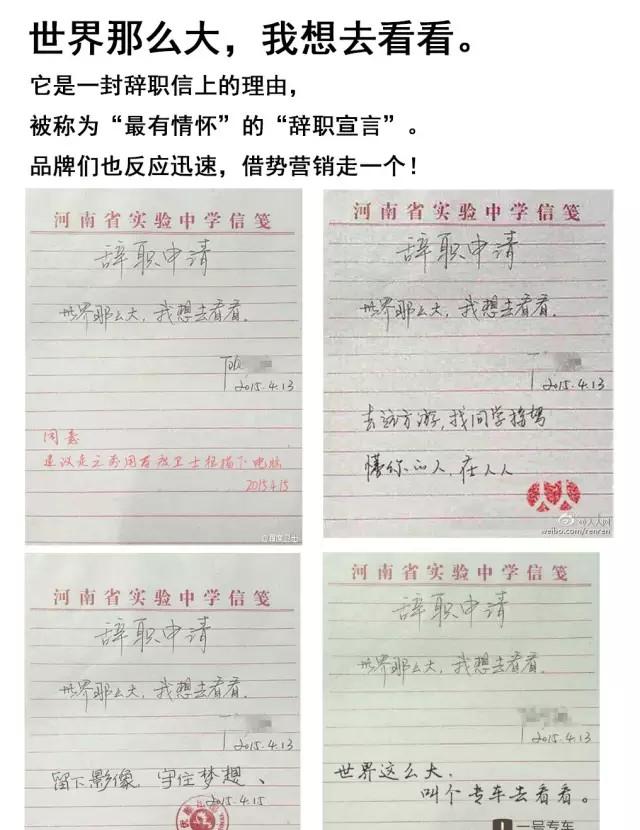 世界那么大，我想去看看。
它是一封辞职信上的理由，
被称为“最有情怀”的“辞职宣言”。
品牌们也反应迅速，借势营销走一个！
河南省实验中学信笺
辞职申请
世界那么大，我想去看看。
2015.4.13
同意
建议走之前用百度卫士扫描下电脑
2015.4.15
河南省实验中学信笺
辞职申请
世界那么大，我想去看看.
2015.4.13
去远方游，找同学指驾
懂你的人，在人人
@人人网
weibo.com/renren
河南省实验中学信笺
辞职申请
世界那么大，我想去看看.
2015.4.13
留下影像，守住梦想、
2015.4.15
河南省实验中学信笺
辞职申请
世界那么大，我想去看看.
2015.4.13
世界这么大，
叫个专车去看看。
一号专车